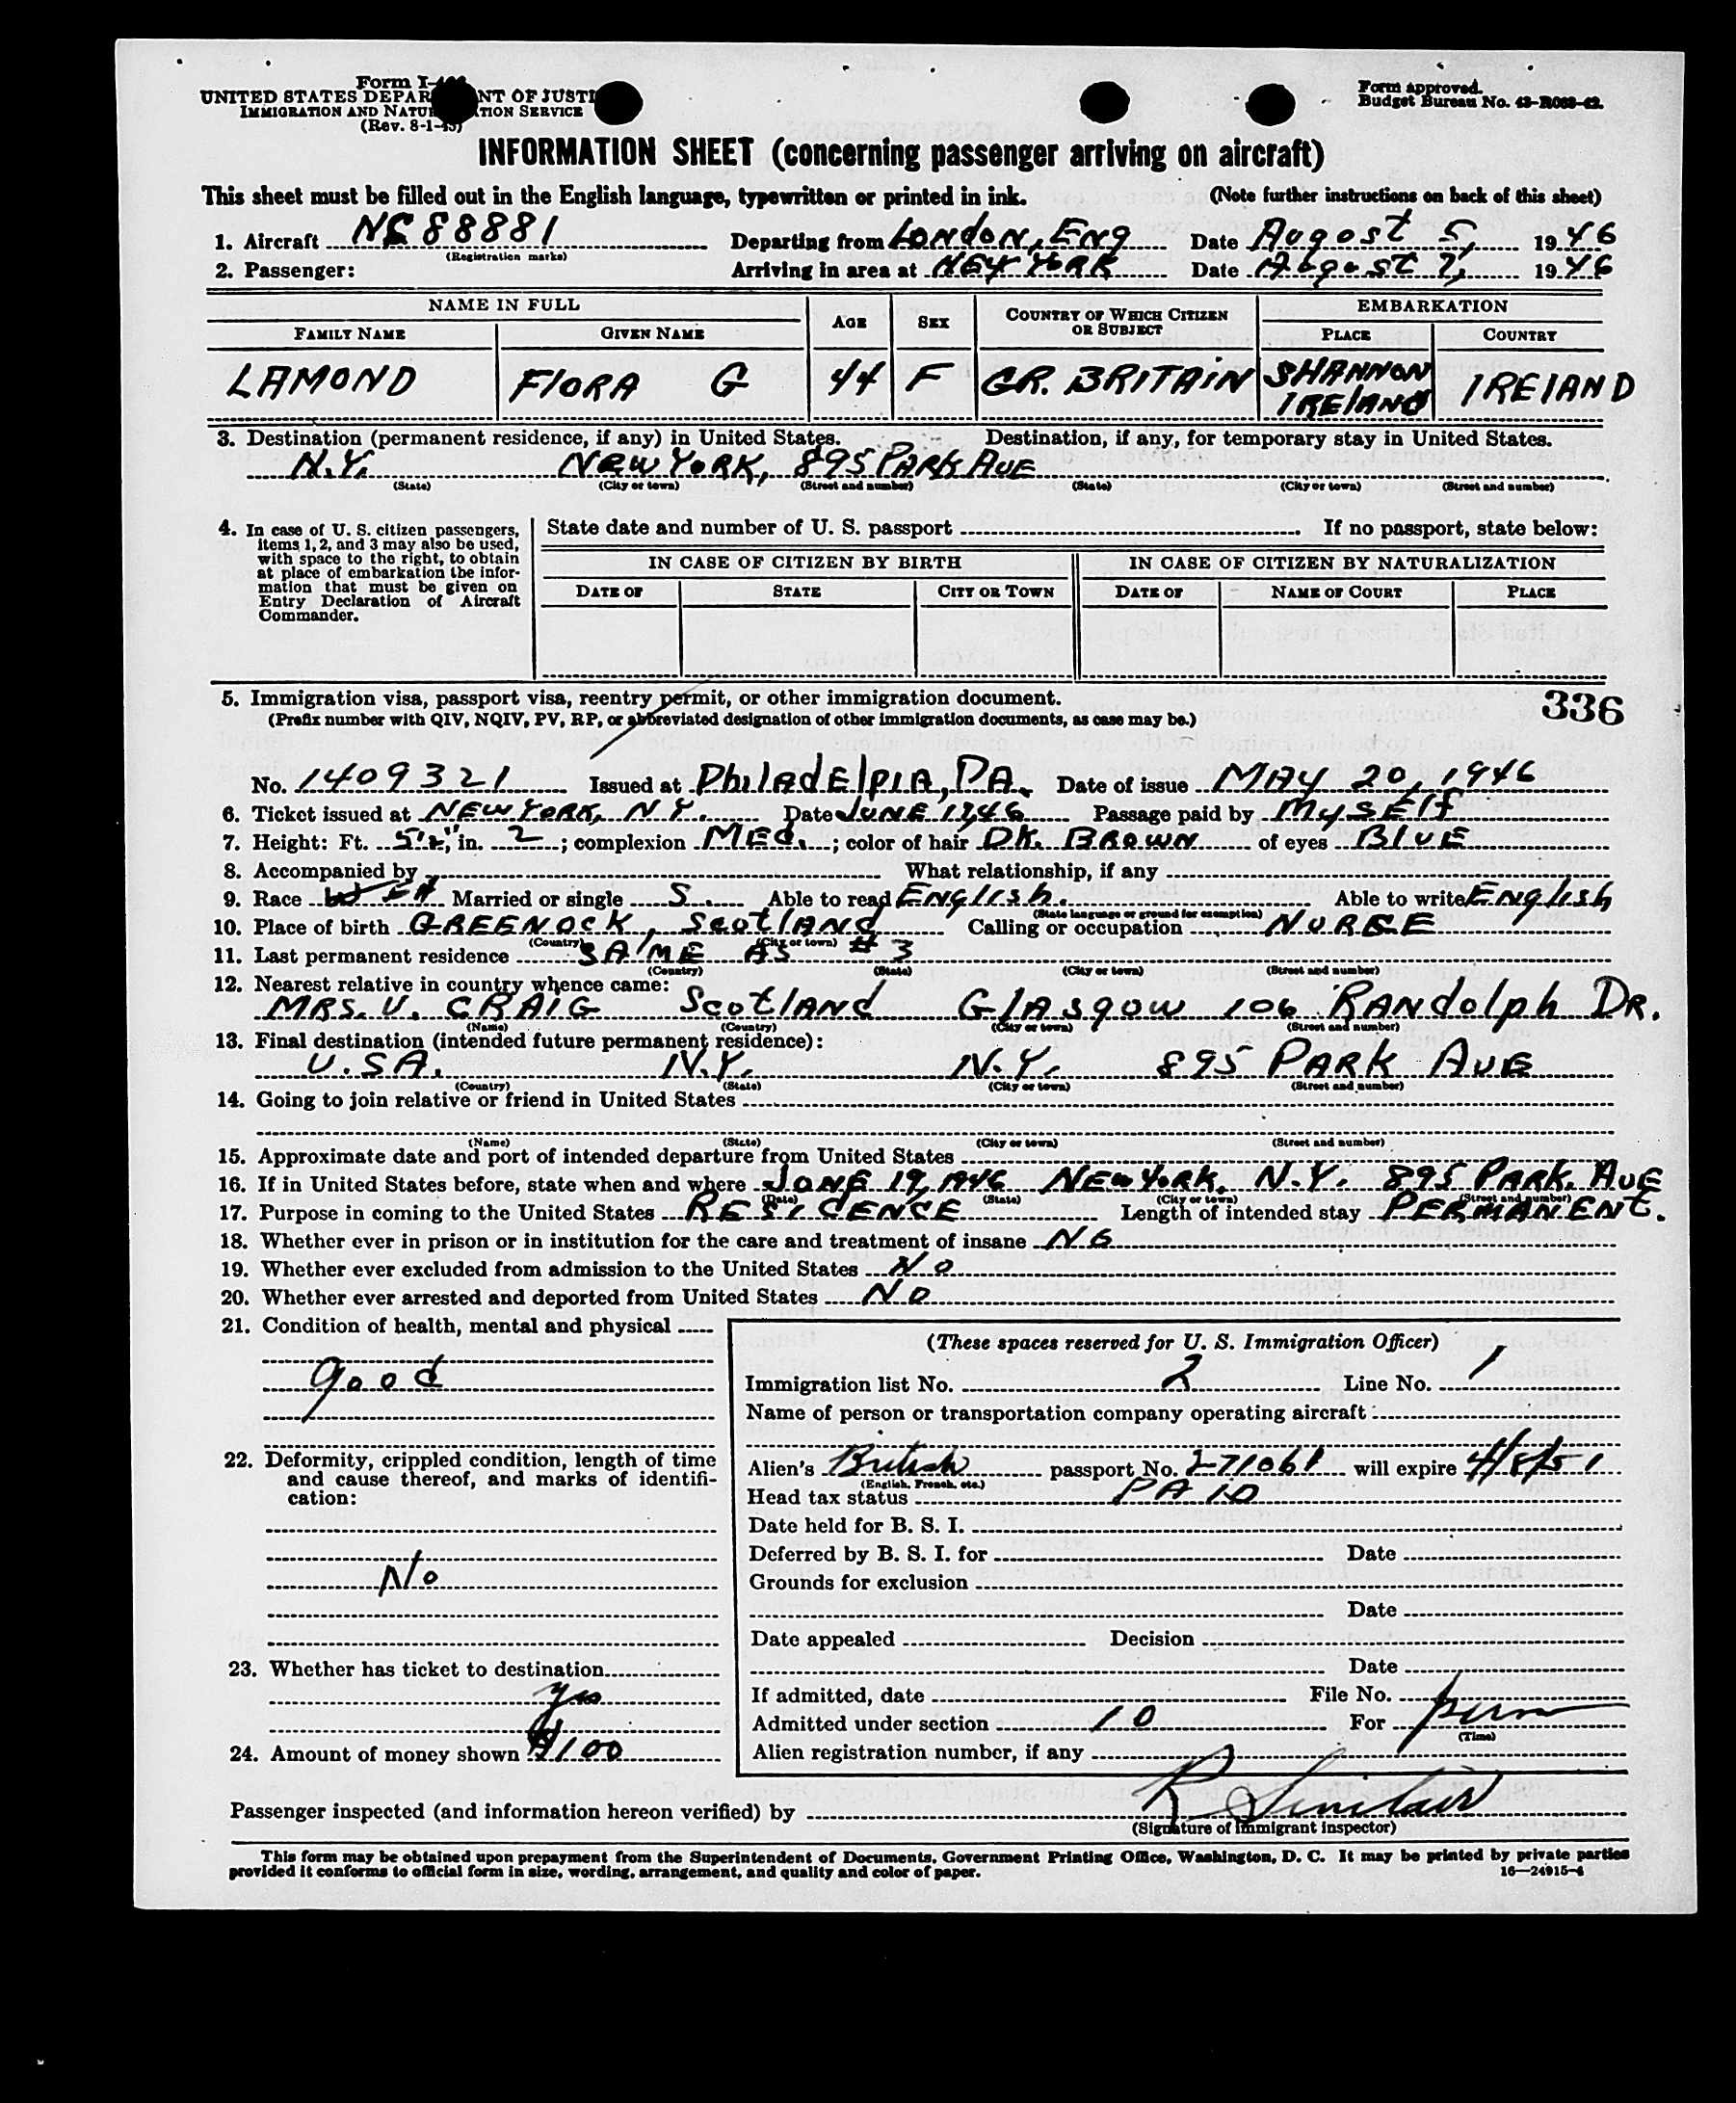 Form I-
UNITED STATES DEPAR NT OF JUSTI
IMMIGRATION AND NATU TION SERVICE
(Rev. 8-1-45)
Form approved.
Budget Bureau No. 43-R083-42.
INFORMATION SHEET (concerning passenger arriving on aircraft)
This sheet must be filled out in the English language, typewritten or printed in ink. (Note further instructions on back of this sheet)
1. Aircraft NC 88881 Departing from London, Eng Date August 5, 1946
(Registration marks)
2. Passenger: Arriving in area at NEW YORK Date August 7, 1946
NAME IN FULL AGE SEX COUNTRY OF WHICH CITIZEN OR SUBJECT EMBARKATION
FAMILY NAME GIVEN NAME PLACE COUNTRY
LAMOND FlORA G 44 F GR. BRITAIN SHANNON IRElAND IRElAND
3. Destination (permanent residence, if any) in United States. Destination, if any, for temporary stay in United States.
N.Y. NEW YORK, 895 PARK AVE
(State) (City or town) (Street and number) (State) (City or town) (Street and number)
4. In case of U. S. citizen passengers, items 1, 2, and 3 may also be used, with space to the right, to obtain at place of embarkation the information that must be given on Entry Declaration of Aircraft Commander.
State date and number of U. S. passport If no passport, state below:
IN CASE OF CITIZEN BY BIRTH IN CASE OF CITIZEN BY NATURALIZATION
DATE OF STATE CITY OR TOWN DATE OF NAME OF COURT PLACE
5. Immigration visa, passport visa, reentry permit, or other immigration document. 336
(Prefix number with QIV, NQIV, PV, RP, or abbreviated designation of other immigration documents, as case may be.)
No. 1409321 Issued at PhilAdElpIA, PA. Date of issue MAY 20, 1946
6. Ticket issued at NEW YORK, N.Y. Date JUNE 17,46 Passage paid by MySElf
7. Height: Ft. 5 in. 2; complexion MED.; color of hair DK. BROWN of eyes BlUE
8. Accompanied by What relationship, if any
9. Race Married or single S. Able to read ENglish. Able to write ENglish
(State language or ground for exemption)
10. Place of birth GREENOCK, ScotlAND Calling or occupation NURSE
(Country) (City or town)
11. Last permanent residence SAME AS # 3
(Country) (State) (City or town) (Street and number)
12. Nearest relative in country whence came:
MRS. U. CRAIG ScotlAND GlAsgow 106 RANdolph DR.
(Name) (Country) (City or town) (Street and number)
13. Final destination (intended future permanent residence):
U.S.A. N.Y. N.Y. 895 PARK AVE
(Country) (State) (City or town) (Street and number)
14. Going to join relative or friend in United States
(Name) (State) (City or town) (Street and number)
15. Approximate date and port of intended departure from United States
16. If in United States before, state when and where JUNE 19, 1946 NEW YORK, N.Y. 895 PARK. AVE
(Date) (State) (City or town) (Street and number)
17. Purpose in coming to the United States RESIDENCE Length of intended stay PERMANENT.
18. Whether ever in prison or in institution for the care and treatment of insane NO
19. Whether ever excluded from admission to the United States NO
20. Whether ever arrested and deported from United States NO
21. Condition of health, mental and physical
good
22. Deformity, crippled condition, length of time and cause thereof, and marks of identification:
No
23. Whether has ticket to destination
yes
24. Amount of money shown $100
(These spaces reserved for U. S. Immigration Officer)
Immigration list No. 2 Line No. 1
Name of person or transportation company operating aircraft
Alien's British passport No. 271061 will expire 4/8/51
(English, French, etc.)
Head tax status PAID
Date held for B. S. I.
Deferred by B. S. I. for Date
Grounds for exclusion
Date
Date appealed Decision
Date
If admitted, date File No.
Admitted under section 10 For perm
(Time)
Alien registration number, if any
Passenger inspected (and information hereon verified) by R Sinclair
(Signature of immigrant inspector)
This form may be obtained upon prepayment from the Superintendent of Documents, Government Printing Office, Washington, D. C. It may be printed by private parties
provided it conforms to official form in size, wording, arrangement, and quality and color of paper. 16—24915-4